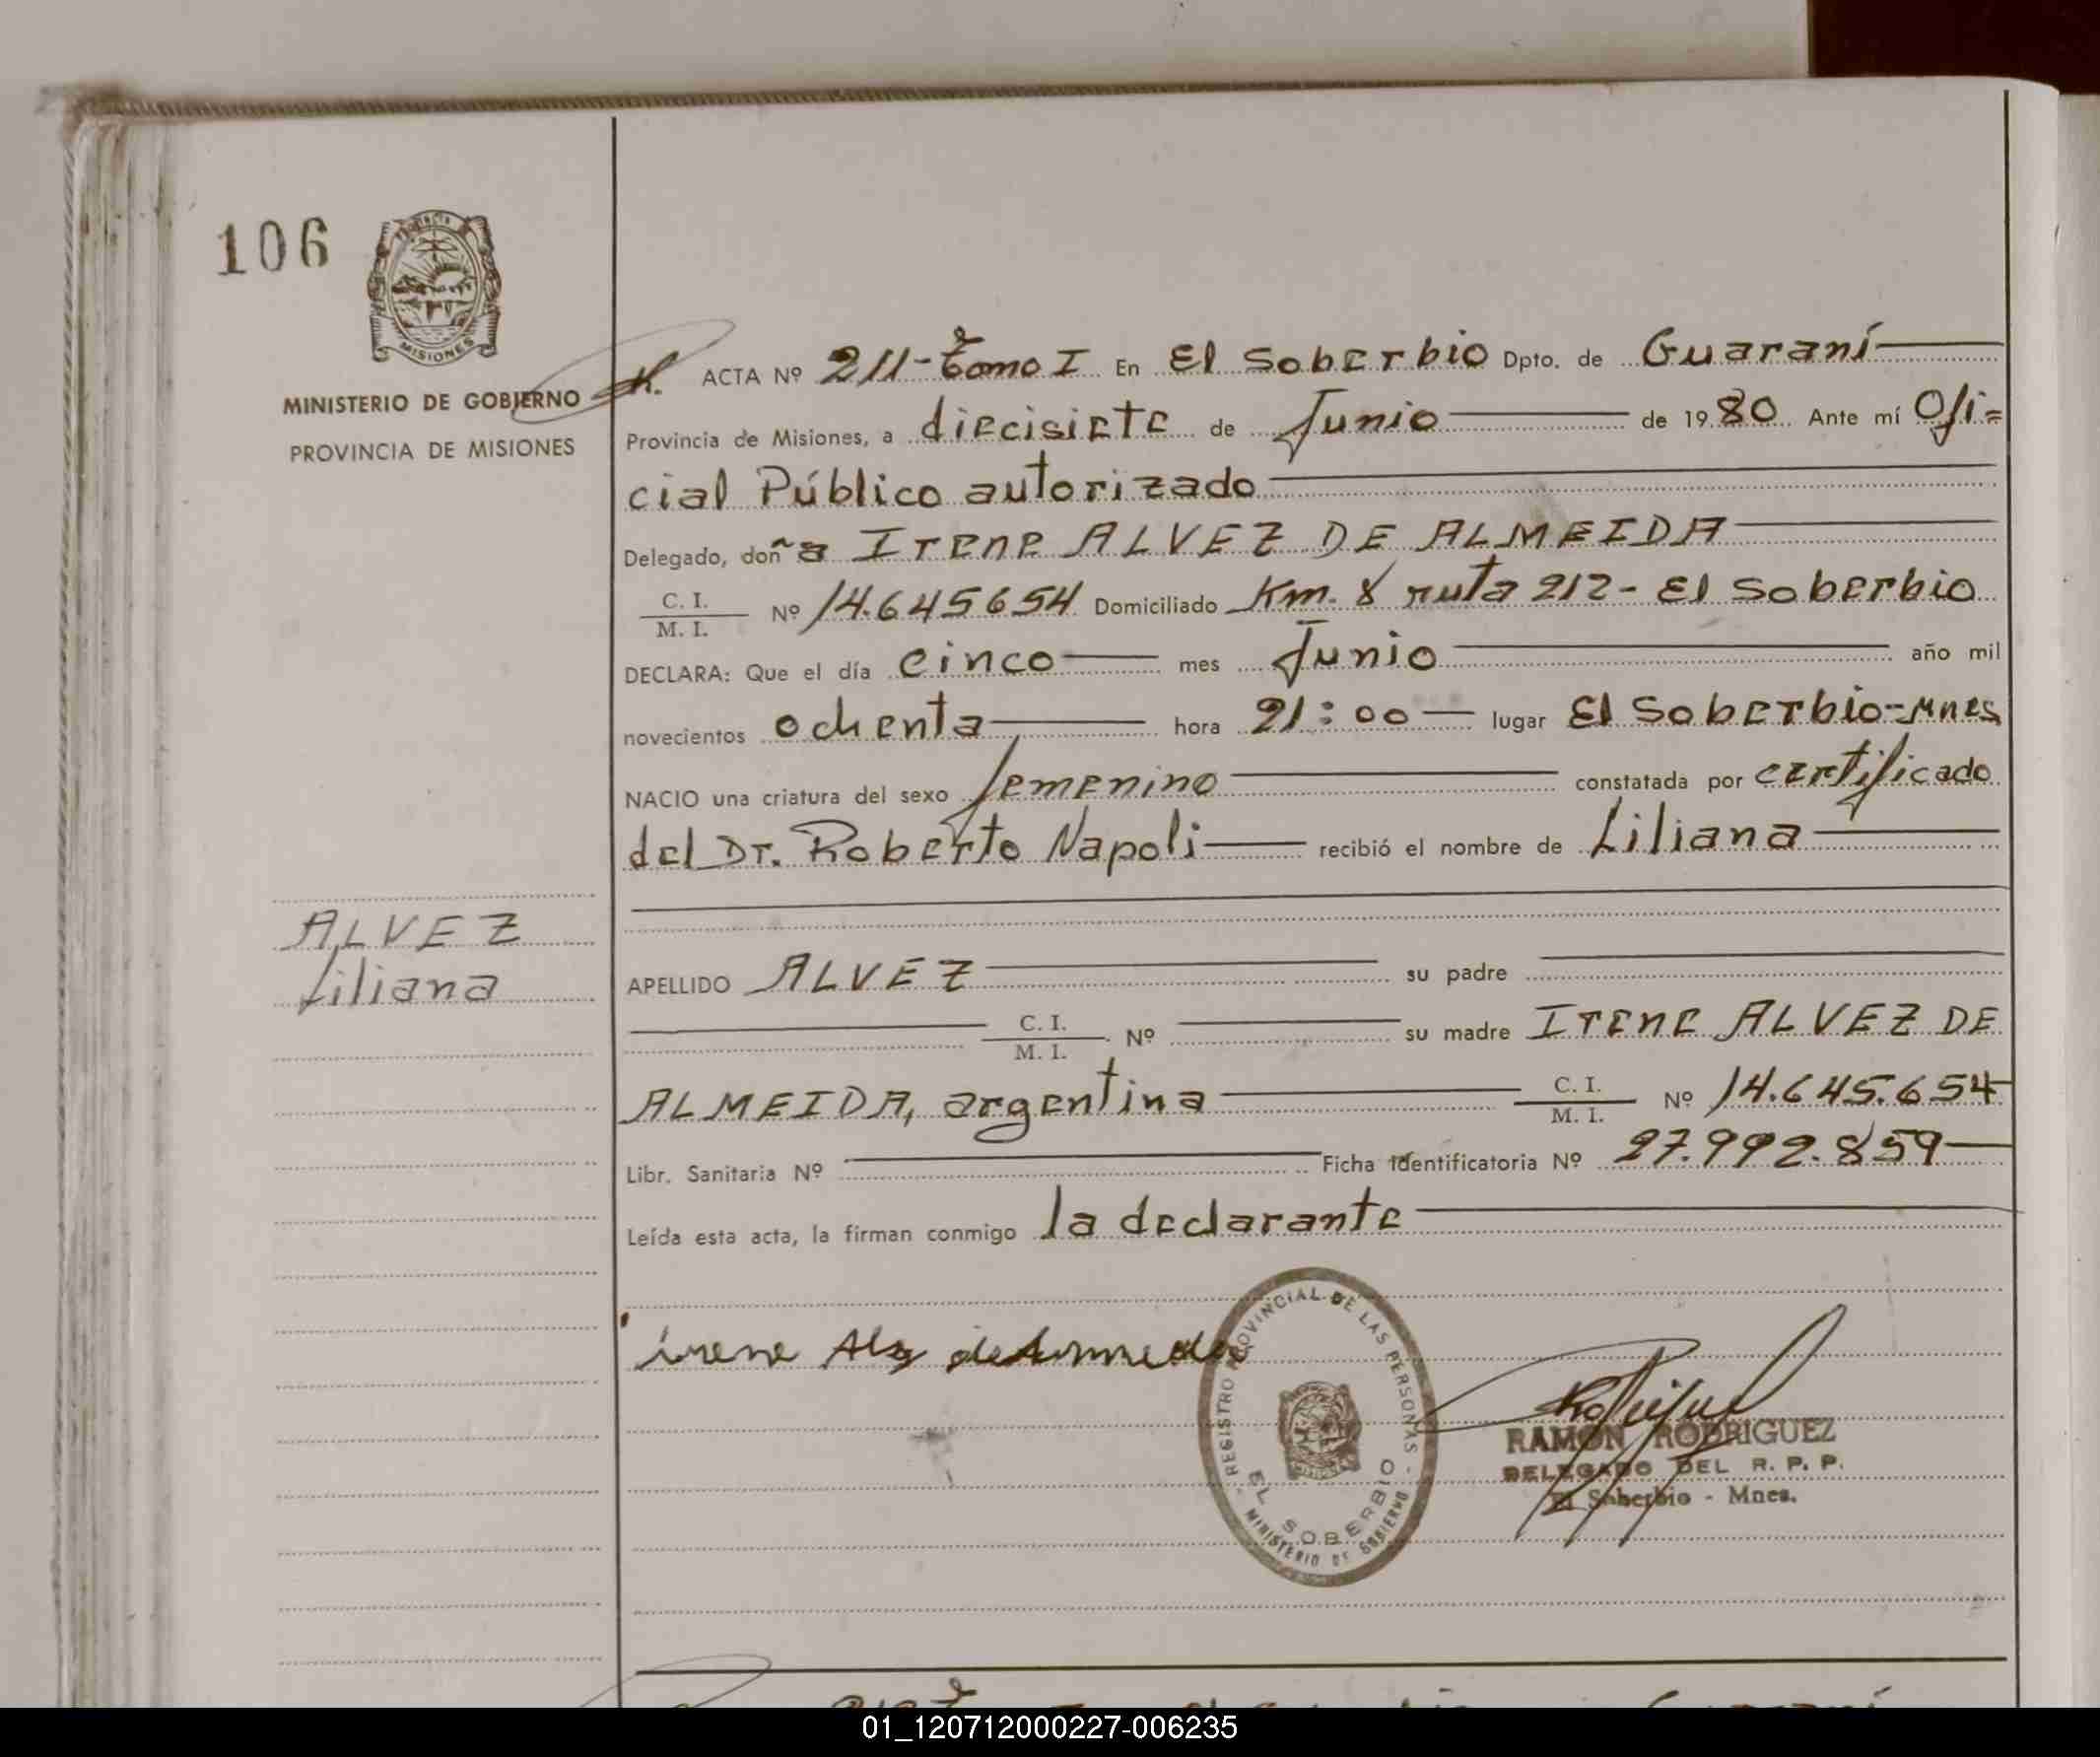 106
MISIONES
MINISTERIO DE GOBIERNO
PROVINCIA DE MISIONES
ACTA Nº 211-Tomo I En El Soberbio Dpto. de Guaraní
Provincia de Misiones, a diecisiete de Junio de 1980 Ante mí Ofi=
cial Público autorizado
Delegado, doña Irene ALVEZ DE ALMEIDA
C. I.
M. I. Nº 14.645654 Domiciliado Km. 8 ruta 212- El Soberbio
DECLARA: Que el día cinco mes Junio año mil
novecientos ochenta hora 21:00 lugar El Soberbio-Mnes
NACIO una criatura del sexo femenino constatada por certificado
del Dr. Roberto Napoli recibió el nombre de Liliana
ALVEZ
Liliana
APELLIDO ALVEZ su padre
C. I.
M. I. Nº su madre Irene ALVEZ DE
ALMEIDA, argentina C. I.
M. I. Nº 14.645.654
Libr. Sanitaria Nº Ficha Identificatoria Nº 27.992.859
Leída esta acta, la firman conmigo la declarante
irene
REGISTRO PROVINCIAL DE LAS PERSONAS - MINISTERIO DE GOBIERNO -
EL SOBERBIO
RAMON RODRIGUEZ
DELEGADO DEL R. P. P.
El Soberbio - Mnes.
01_120712000227-006235